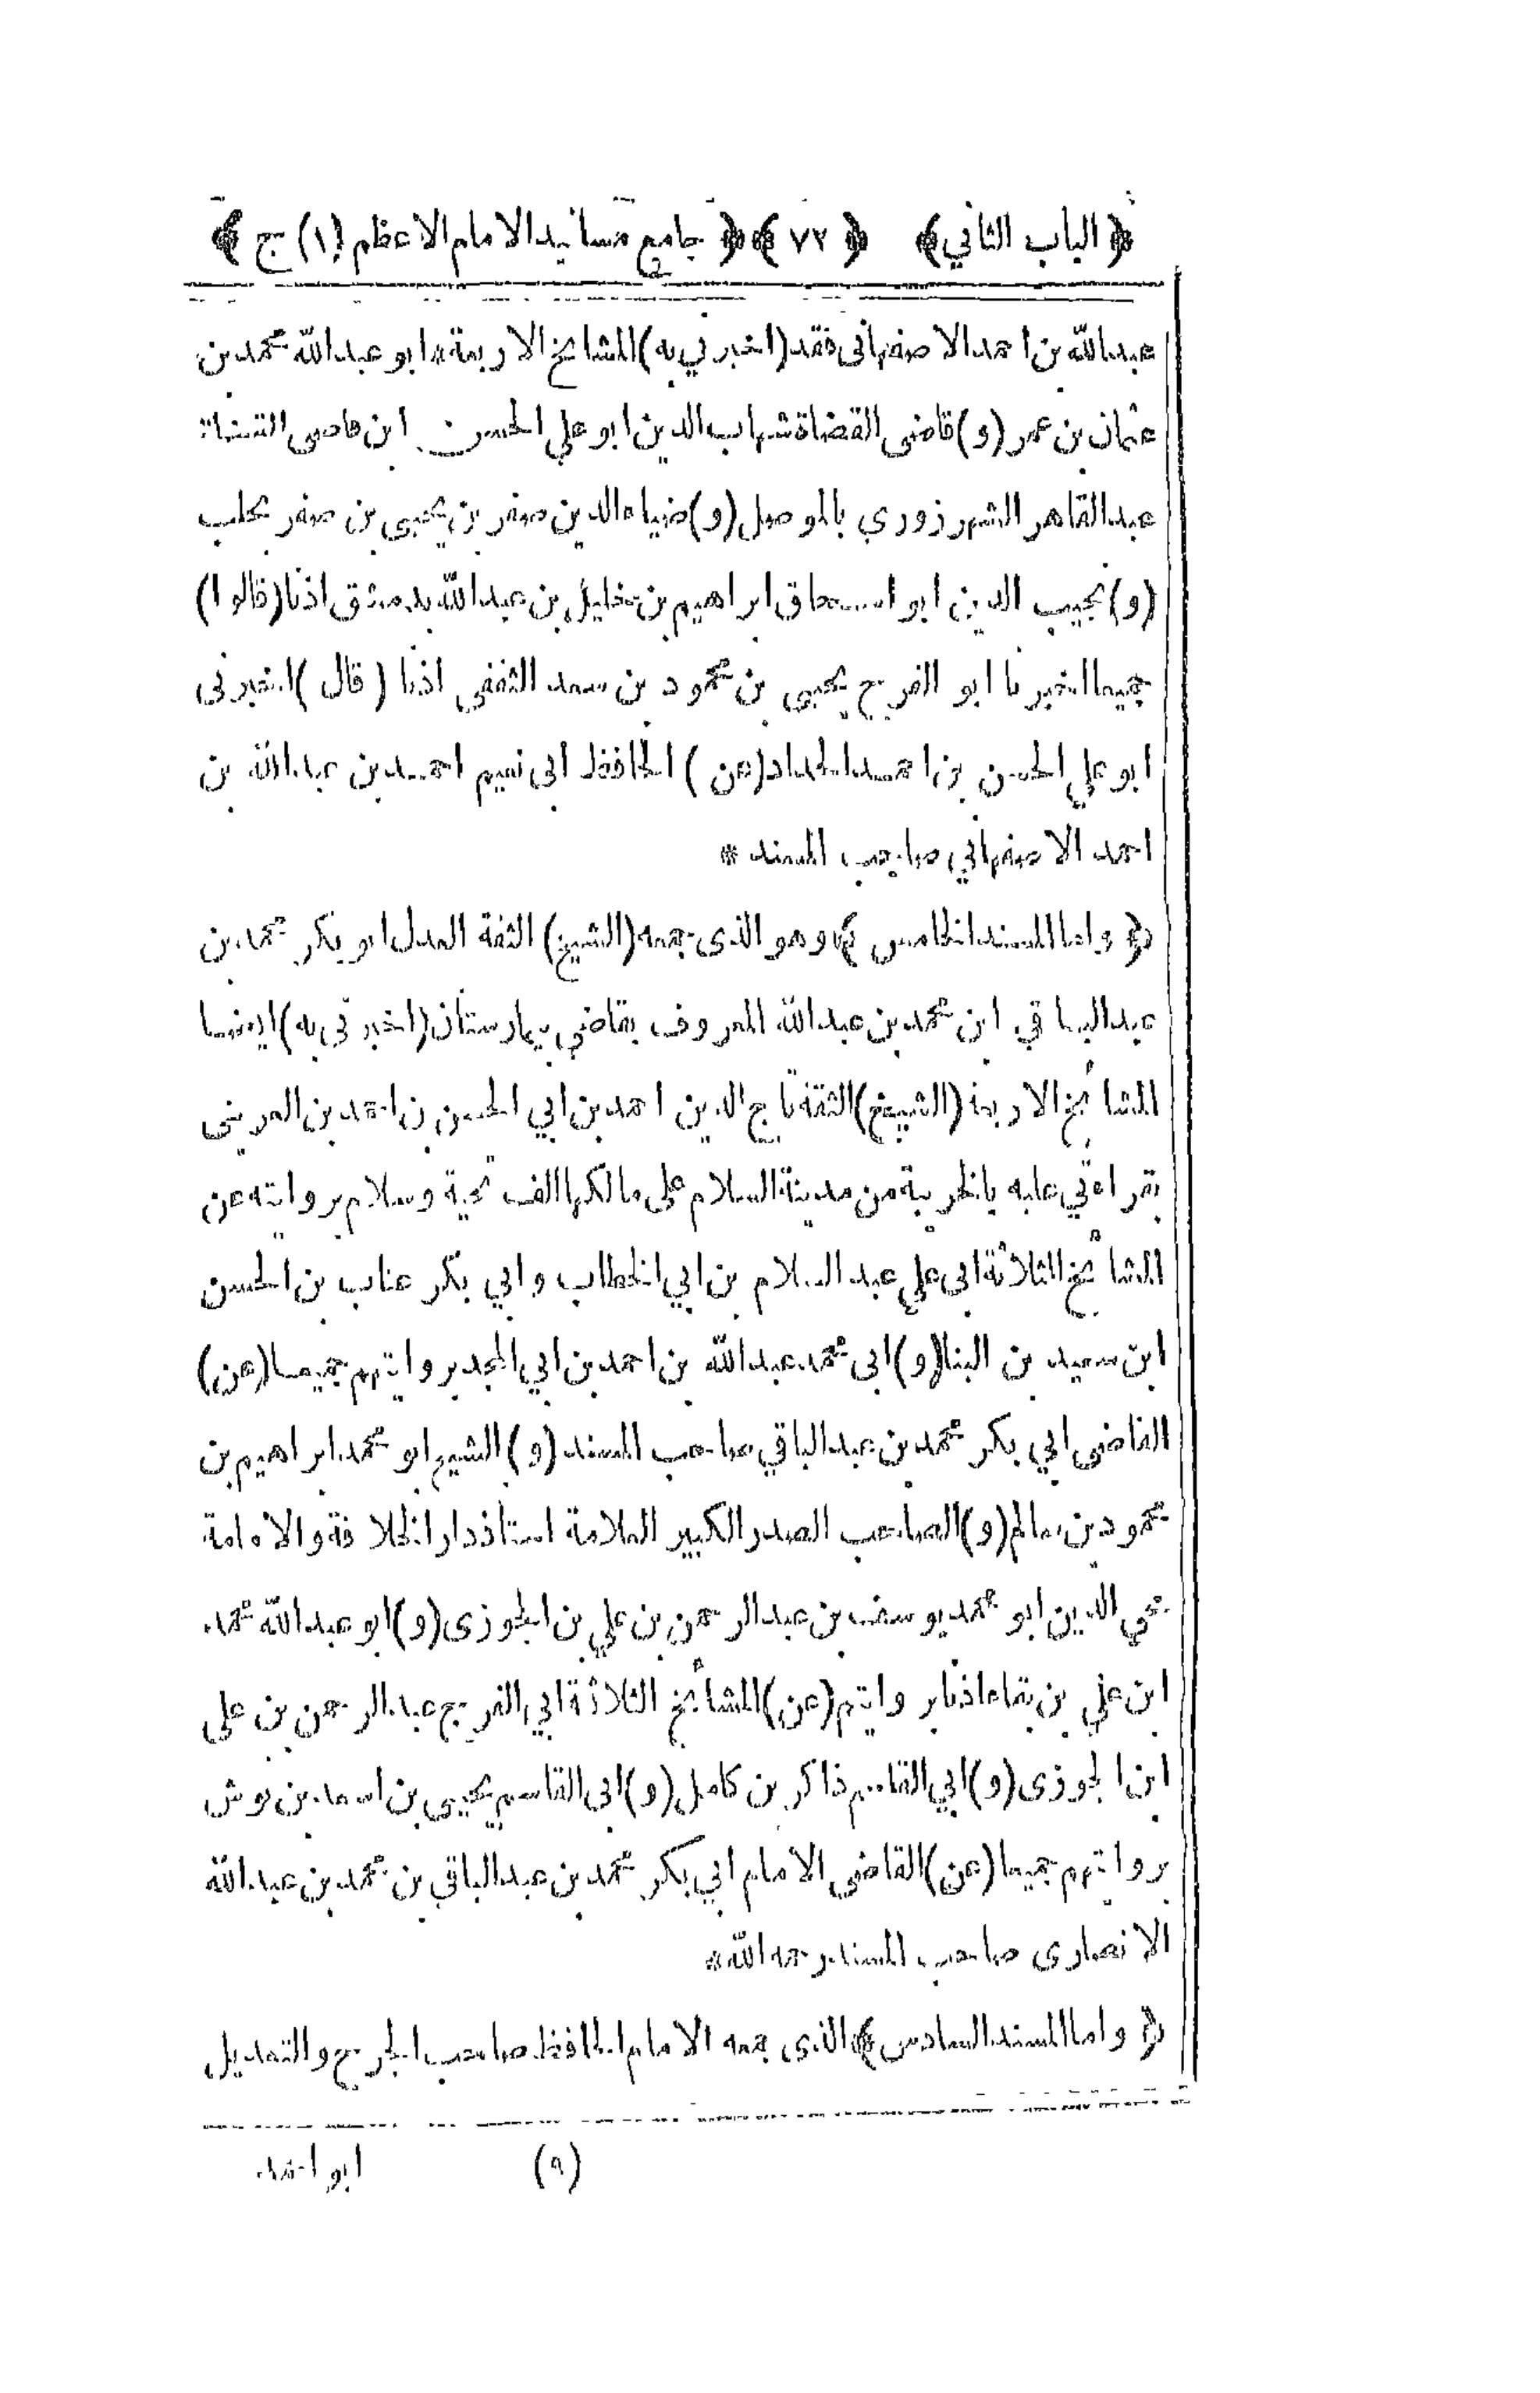 ﴿ الباب الثاني ﴾ ﴿ ٧٢ ﴾ ﴿ جامع مسانيد الامام الاعظم (١) ج ﴾
عبدالله بن احمد الاصفهانى فقد (اخبرني به) المشايخ الاربعة ابو عبدالله محمد بن
عثمان بن عمر (و) قاضى القضاة شهاب الدين ابو علي الحسن ابن قاضى القضاة
عبد القاهر الشهرزوري بالموصل (و) ضياء الدين صقر بن يحيى بن صقر بحلب
(و) نجيب الدين ابو اسحاق ابراهيم بن خليل بن عبدالله بدمشق اذنا (قالوا)
جميعا اخبرنا ابو الفرج يحيى بن محمود بن سعد الثقفي اذنا ( قال ) اخبرنى
ابو علي الحسن بن احمد الحداد (عن ) الحافظ ابى نعيم احمد بن عبدالله بن
احمد الاصفهاني صاحب المسند *
﴿ واما المسند الخامس ﴾ وهو الذى جمعه (الشيخ) الثقة العدل ابو بكر محمد بن
عبد الباقي ابن محمد بن عبدالله المعروف بقاضي بيمارستان (اخبرنى به) ايضا
المشائخ الاربعة (الشيخ) الثقة تاج الدين احمد بن ابي الحسن بن احمد بن العريضى
بقراءتي عليه بالحربية من مدينة السلام على مالكها الف تحية وسلام بروايته عن
المشائخ الثلاثة ابى علي عبد السلام بن ابي الخطاب وابي بكر عتاب بن الحسن
ابن سعيد بن البنا (و) ابى محمد عبدالله بن احمد بن ابي المجد بروايتهم جميعا (عن)
القاضى ابي بكر محمد بن عبد الباقي صاحب المسند (و) الشيخ ابو محمد ابراهيم بن
محمود بن سالم (و) الصاحب الصدر الكبير العلامة استاذ دار الخلافة والامامة
محي الدين ابو محمد يوسف بن عبد الرحمن بن علي بن الجوزى (و) ابو عبدالله محمد
ابن علي بن بقاء اذنا بروايتهم (عن) المشائخ الثلاثة ابي الفرج عبد الرحمن بن على
ابن الجوزى (و) ابي القاسم ذاكر بن كامل (و) ابى القاسم يحيى بن اسعد بن بوش
بروايتهم جميعا (عن) القاضى الامام ابي بكر محمد بن عبد الباقي بن محمد بن عبدالله
الانصارى صاحب المسند رحمه الله *
﴿ واما المسند السادس ﴾ الذى جمعه الامام الحافظ صاحب الجرح والتعديل
(٩) ابو احمد